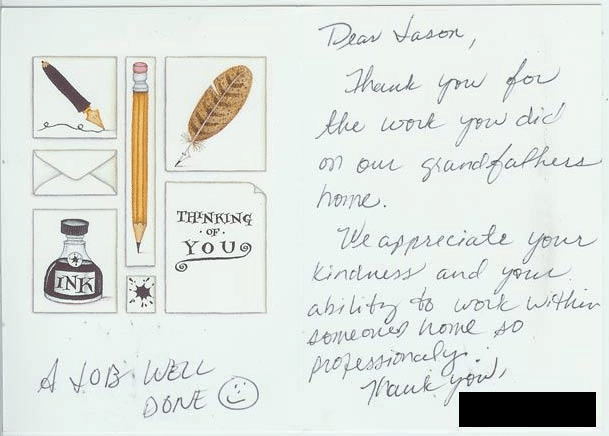 THINKING
OF
YOU
INK
A JOB WELL
DONE
Dear Jason,
Thank you for
the work you did
on our grandfathers
home.
We appreciate your
kindness and your
ability to work within
someones home so
professionaly.
Thank you,